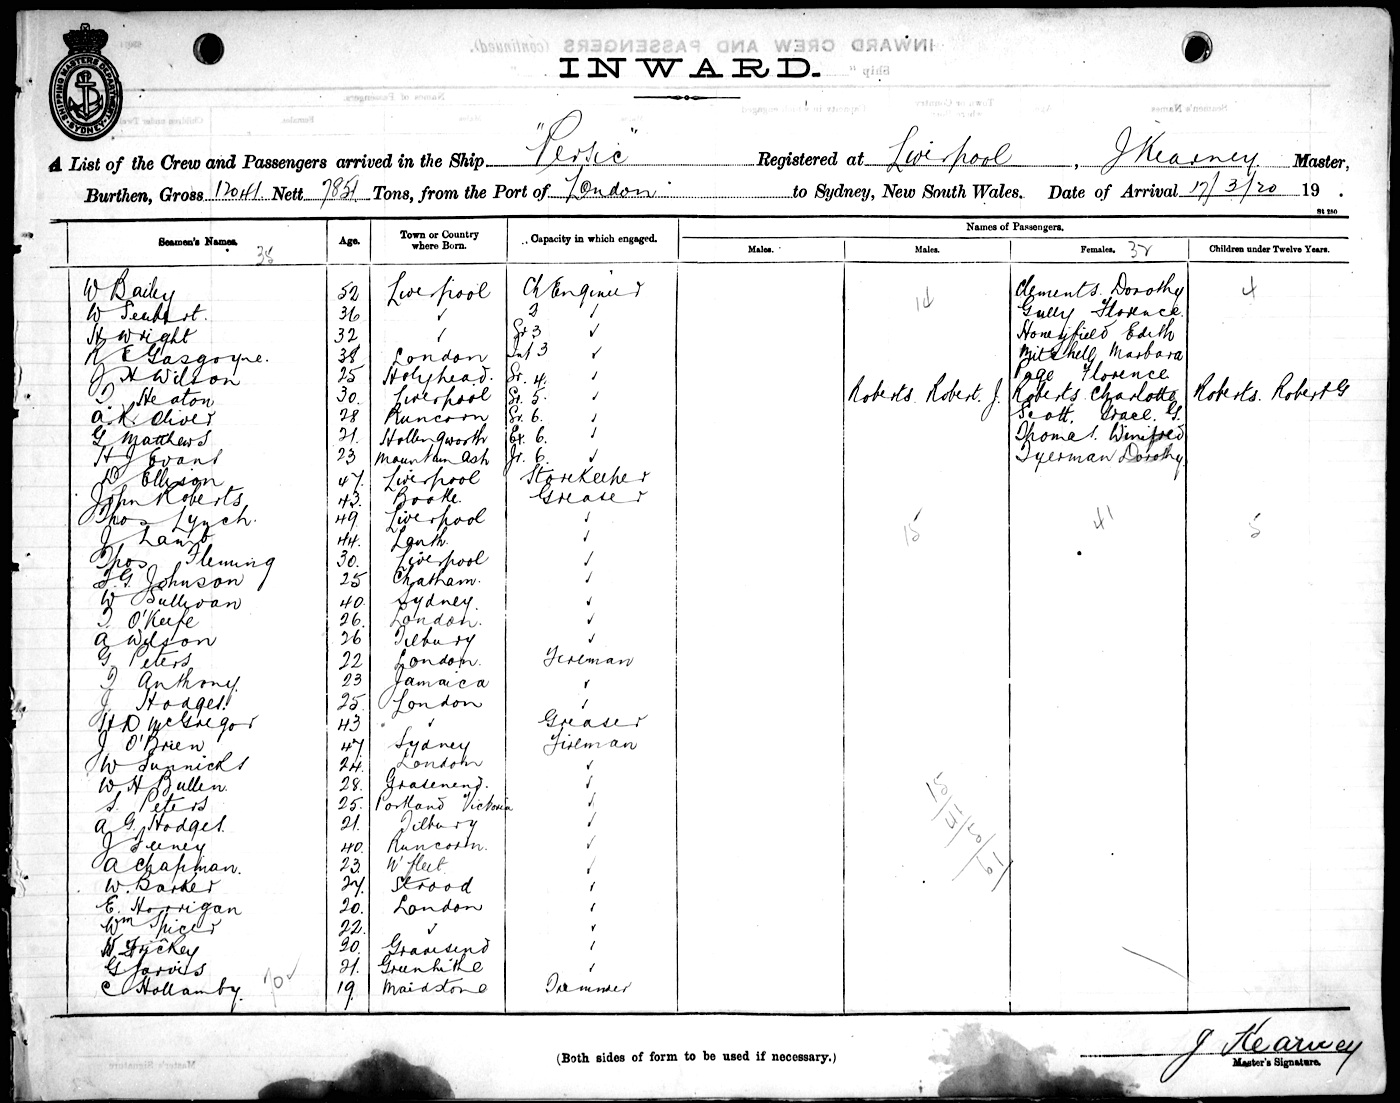 SHIPPING MASTERS DEPARTMENT SYDNEY
INWARD.
A List of the Crew and Passengers arrived in the Ship "Persic" Registered at Liverpool, J Kearney Master,
Burthen, Gross 12041 Nett 7851 Tons, from the Port of London to Sydney, New South Wales. Date of Arrival 17/3/20 19 .
St 280
Seamen's Names. Age. Town or Country where Born. Capacity in which engaged. Names of Passengers.
Males. Males. Females. 32 Children under Twelve Years.
38
W Bailey 52 Liverpool Ch Engineer Clements Dorothy
14 4
W 36 ✓ 2 ✓ Gully Florence
H Wright 32 ✓ Sr 3 ✓ Honeyfield Edith
R E Gasgoyne. 38 London Int 3 ✓ Mitchell Marbara
J H Wilson 25 Holyhead. Sr. 4. ✓ Page Florence
T Heaton 30. Liverpool Sr. 5. ✓ Roberts Robert. J. Roberts Charlotte Roberts. Robert G
A. R. Oliver 28 Runcorn Sr. 6. ✓ Scott. Grace. G.
G Matthews 21. Hollingworth Ex. 6. ✓ Thomas. Winifred
H J Evans 23 Mountain Ash Jr. 6. ✓ Tyerman Dorothy
D Ellison 47. Liverpool Storekeeper
John Roberts 43. Bootle. Greaser
Thos Lynch. 49 Liverpool ✓
15 41 5
J Lamb 44. ✓
Thos Fleming 30. Liverpool ✓
F. G. Johnson 25 Chatham. ✓
W Sullivan 40. Sydney. ✓
T O'Keefe 26. London. ✓
A Wilson 26 Tilbury ✓
G Peters 22 London. Fireman
T Anthony. 23 Jamaica ✓
J Hodges. 25. London ✓
H D McGregor 43 ✓ Greaser
J O'Brien 47 Sydney Fireman
W Sunnicks 24. London ✓
W H Bullen. 28. Gravesend. ✓
S. Peters 25. Portland Victoria ✓
A G. Hodges. 21. Tilbury ✓
J Feeney 40. Runcorn. ✓
15/41/5/61
A Chapman. 23. W'fleet ✓
W. Barker 27 Strood ✓
E. Horrigan 20. London ✓
Wm Spicer 22. ✓ ✓
20. Gravesend ✓
G Jarvis 21. Greenhithe ✓
C Hollamby. 19. Maidstone Trimmer
70 ✓
(Both sides of form to be used if necessary.)
J Kearney
Master's Signature.